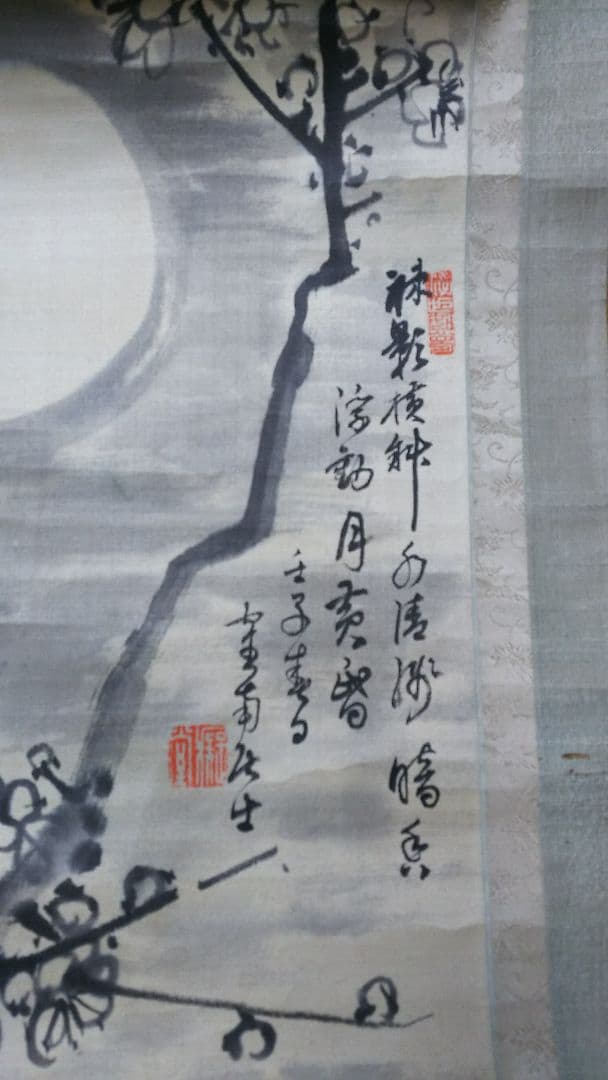 疎影横斜水清浅暗香
浮動月黄昏
壬子春日
南居士